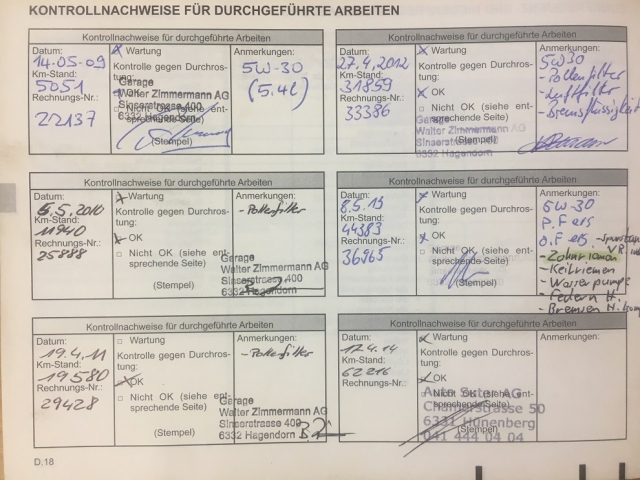 KONTROLLNACHWEISE FÜR DURCHGEFÜHRTE ARBEITEN
Kontrollnachweise für durchgeführte Arbeiten
Datum:
14.05.09
Km-Stand:
5051
Rechnungs-Nr.:
22137
Wartung
Kontrolle gegen Durchros-
tung:
OK
Nicht OK (siehe ent-
sprechende Seite)
(Stempel)
Garage
Walter Zimmermann AG
Sinserstrasse 400
6332 Hagendorn
Anmerkungen:
5W-30
(5.4l)
Kontrollnachweise für durchgeführte Arbeiten
Datum:
27.4.2012
Km-Stand:
31859
Rechnungs-Nr.:
33386
Wartung
Kontrolle gegen Durchros-
tung:
OK
Nicht OK (siehe ent-
sprechende Seite)
(Stempel)
Garage
Walter Zimmermann AG
Sinserstrasse 400
6332 Hagendorn
Anmerkungen:
5W30
- Pollenfilter
- Luftfilter
- Bremsflüssigkeit
Kontrollnachweise für durchgeführte Arbeiten
Datum:
5.5.2010
Km-Stand:
11940
Rechnungs-Nr.:
25888
Wartung
Kontrolle gegen Durchros-
tung:
OK
Nicht OK (siehe ent-
sprechende Seite)
(Stempel)
Garage
Walter Zimmermann AG
Sinserstrasse 400
6332 Hagendorn
Anmerkungen:
- Pollenfilter
Kontrollnachweise für durchgeführte Arbeiten
Datum:
8.5.13
Km-Stand:
44383
Rechnungs-Nr.:
36965
Wartung
Kontrolle gegen Durchros-
tung:
OK
Nicht OK (siehe ent-
sprechende Seite)
(Stempel)
Anmerkungen:
5W-30
P.F ers
Ö.F ers
- Zahnriemen
- Keilriemen
- Wasserpumpe
- Federn H.
- Bremsen H.
Kontrollnachweise für durchgeführte Arbeiten
Datum:
19.4.11
Km-Stand:
19580
Rechnungs-Nr.:
29428
Wartung
Kontrolle gegen Durchros-
tung:
OK
Nicht OK (siehe ent-
sprechende Seite)
(Stempel)
Garage
Walter Zimmermann AG
Sinserstrasse 400
6332 Hagendorn
Anmerkungen:
- Pollenfilter
Kontrollnachweise für durchgeführte Arbeiten
Datum:
17.4.14
Km-Stand:
62216
Rechnungs-Nr.:
Wartung
Kontrolle gegen Durchros-
tung:
OK
Nicht OK (siehe ent-
sprechende Seite)
(Stempel)
Auto Suter AG
Chamerstrasse 50
6331 Hünenberg
041 444 04 04
Anmerkungen:
D.18